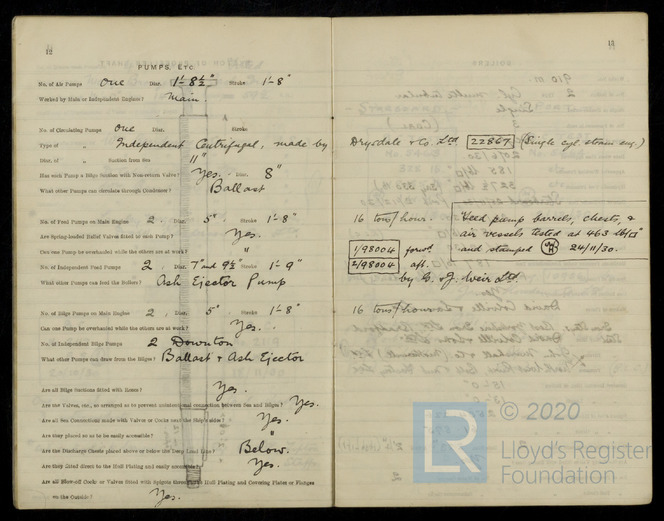 12
PUMPS, Etc.
No. of Air Pumps One Diar. 1'-8½" Stroke 1'-8"
Worked by Main or Independent Engines? Main.
No. of Circulating Pumps One Diar. Stroke
Type of " Independent Centrifugal, made by
Diar. of " Suction from Sea 11"
Has each Pump a Bilge Suction with Non-return Valve? Yes. Diar. 8"
What other Pumps can circulate through Condenser? Ballast
No. of Feed Pumps on Main Engine 2 Diar. 5" Stroke 1'-8"
Are Spring-loaded Relief Valves fitted to each Pump? Yes.
Can one Pump be overhauled while the others are at work? "
No. of Independent Feed Pumps 2 Diar. 7" and 9½" Stroke 1'-9"
What other Pumps can feed the Boilers? Ash Ejector Pump
No. of Bilge Pumps on Main Engine 2 Diar. 5" Stroke 1'-8"
Can one Pump be overhauled while the others are at work? Yes.
No. of Independent Bilge Pumps 2 Downton
What other Pumps can draw from the Bilges? Ballast + Ash Ejector
Are all Bilge Suctions fitted with Roses? Yes.
Are the Valves, &c., so arranged as to prevent unintentional connection between Sea and Bilges? Yes.
Are all Sea Connections made with Valves or Cocks next the Ship's sides? Yes.
Are they placed so as to be easily accessible? "
Are the Discharge Chests placed above or below the Deep Load Line? Below.
Are they fitted direct to the Hull Plating and easily accessible? Yes.
Are all Blow-off Cocks or Valves fitted with Spigots through the Hull Plating and Covering Plates or Flanges
on the Outside? Yes.
13
Drysdale & Co. Ltd 22867 (Single cyl. steam eng.)
16 tons/hour.
1/98004 forwd.
2/98004 aft.
by G. & J. Weir Ltd.
Feed pump barrels, chests, &
air vessels tested at 463 lb/□"
and stamped 24/11/30.
16 tons/hour
LR
© 2020
Lloyd's Register
Foundation